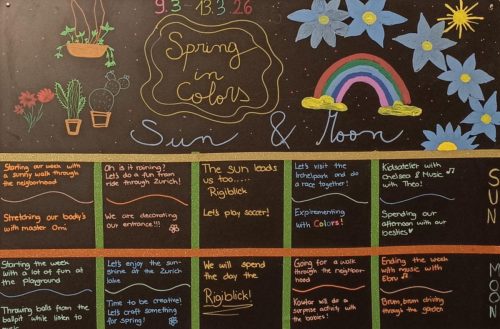 9.3 - 13.3 26
Spring
in
Colors
Sun & Moon
Starting our week with
a sunny walk through the
neigborhood
Stretching our body's
with master Omi
Oh is it raining?
Let's do a fun tram
ride through Zurich!
We are decorating
our entrance!!!
The sun leads
us too.....
Rigiblick
Let's play soccer!
Let's visit the
Irchelpark and do
a race together!
Expirementing
with Colors!
Kidsatelier with
Chelsea & Music
with Theo!
Spending our
afternoon with our
besties
SUN
Starting the week
with a lot of fun at
the playground
Thrawing balls from the
ballpit while listen to
music
Let's enjoy the sun-
shine at the Zurich
lake
Time to be creative!
Let's craft something
for spring!
We will spend
the day the
Rigiblick!
Going for a walk
through the neighbor-
hood
Kawtar will do a
surprise activity with
the babies!
Ending the week
with music with
Eldin
Brum, brum driving
through the garden
MOON